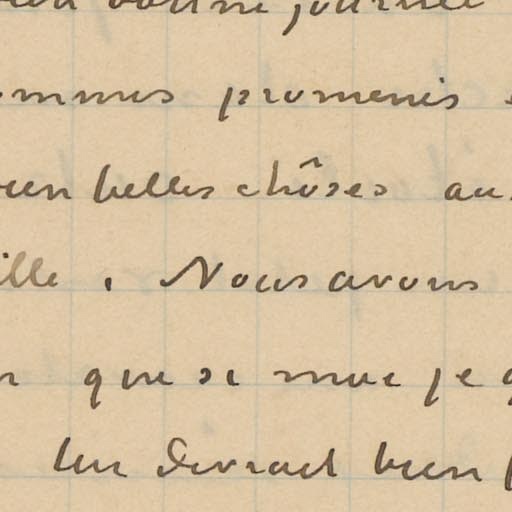 bonne journée
ommes promenés
bien belles chôses au
ille. Nous avons
que si moi je
lui devrait bien